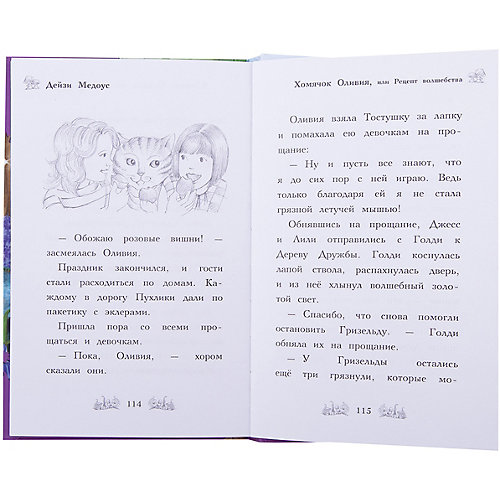 Дейзи Медоус
— Обожаю розовые вишни! —
засмеялась Оливия.
Праздник закончился, и гости
стали расходиться по домам. Ка-
ждому в дорогу Пухлики дали по
пакетику с эклерами.
Пришла пора со всеми про-
щаться и девочкам.
— Пока, Оливия, — хором
сказали они.
114
Хомячок Оливия, или Рецепт волшебства
Оливия взяла Тостушку за лапку
и помахала ею девочкам на про-
щание:
— Ну и пусть все знают, что
я до сих пор с ней играю. Ведь
только благодаря ей я не стала
грязной летучей мышью!
Обнявшись на прощание, Джесс
и Лили отправились с Голди к
Дереву Дружбы. Голди коснулась
лапой ствола, распахнулась дверь,
и из неё хлынул волшебный золо-
той свет.
— Спасибо, что снова помогли
остановить Гризельду. — Голди
обняла их на прощание.
— У Гризельды остались
ещё три грязнули, которые мо-
115